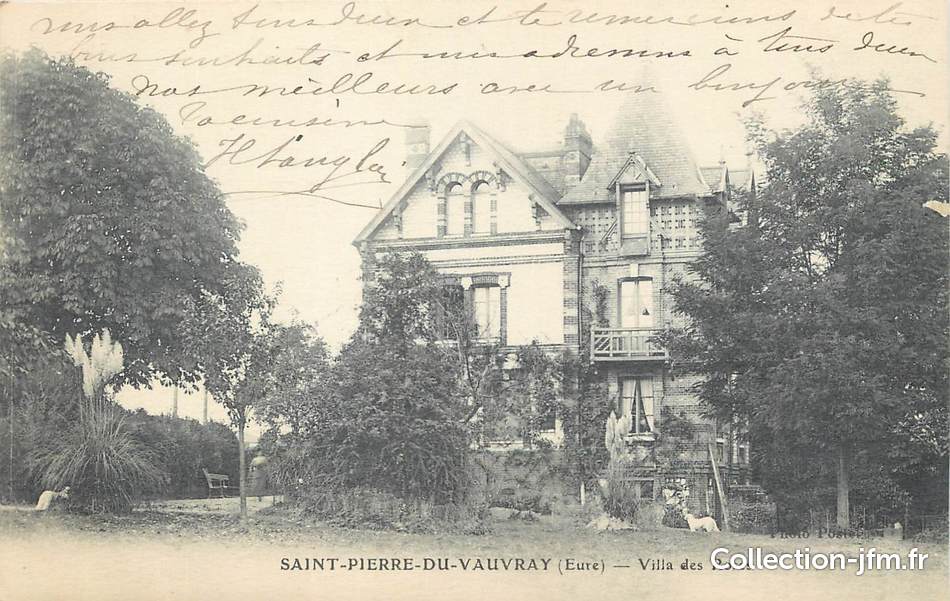 vous allez tous deux et te remercions de tes
bons souhaits et nous adressons à tous deux
nos meilleurs avec un bonjour
SAINT-PIERRE-DU-VAUVRAY (Eure) — Villa des
Photo
Collection-jfm.fr